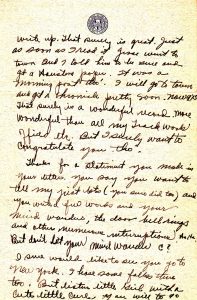 write up. That surely is great. Just
as soon as I read it Jesse went to
town and I told him to be sure and
get a Houston paper. It was a
morning post tho'. I will go to town
and get a Chronicle pretty soon.
That surely is a wonderful record. More
wonderful than all my Track work!
But I surely want to
Congratulate you tho'.
Thanks for a statement you made in
your letter. You say you want to
tell me just lots (you sure did too) and
you write of words and your
mind wanders, the door bell rings
and other numerous interruptions.
But don't let your mind wander
I sure would like to see you go to
New York. I have some false time
too. But listen little Girl with a
Curls, if you will to